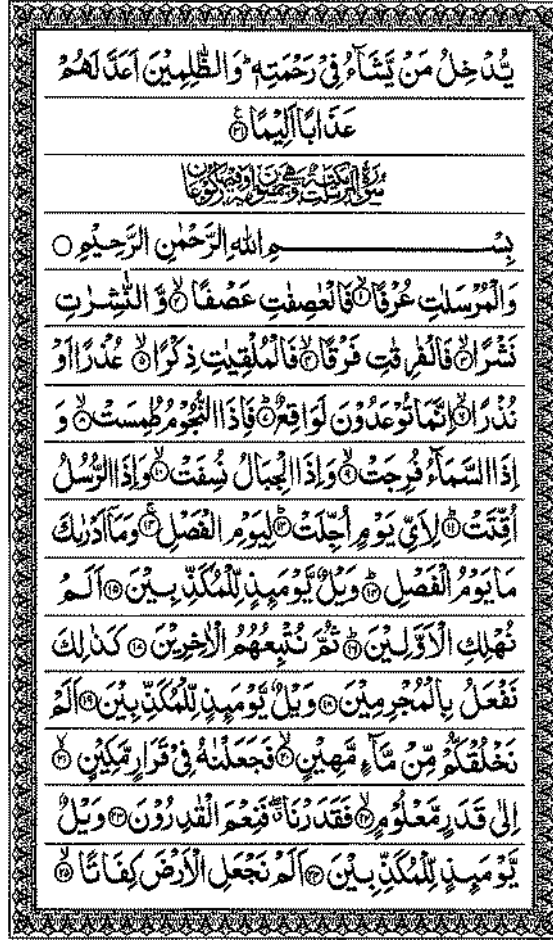 يُّدْخِلُ مَنْ يَّشَآءُ فِيْ رَحْمَتِهٖ ؕ وَالظّٰلِمِيْنَ اَعَدَّ لَهُمْ
عَذَابًا اَلِيْمًا ۟ ۳۱
بِسْمِ اللّٰهِ الرَّحْمٰنِ الرَّحِيْمِ ○
وَالْمُرْسَلٰتِ عُرْفًا ۙ ۱ فَالْعٰصِفٰتِ عَصْفًا ۙ ۲ وَّ النّٰشِرٰتِ
نَشْرًا ۙ ۳ فَالْفٰرِقٰتِ فَرْقًا ۙ ۴ فَالْمُلْقِيٰتِ ذِكْرًا ۙ ۵ عُذْرًا اَوْ
نُذْرًا ۙ ۶ اِنَّمَا تُوْعَدُوْنَ لَوَاقِعٌ ؕ ۷ فَاِذَا النُّجُوْمُ طُمِسَتْ ۙ ۸ وَ
اِذَا السَّمَآءُ فُرِجَتْ ۙ ۹ وَاِذَا الْجِبَالُ نُسِفَتْ ۙ ۱۰ وَاِذَا الرُّسُلُ
اُقِّتَتْ ؕ ۱۱ لِاَيِّ يَوْمٍ اُجِّلَتْ ؕ ۱۲ لِيَوْمِ الْفَصْلِ ۚ ۱۳ وَمَاۤ اَدْرٰىكَ
مَا يَوْمُ الْفَصْلِ ؕ ۱۴ وَيْلٌ يَّوْمَىِٕذٍ لِّلْمُكَذِّبِيْنَ ۱۵ اَلَمْ
نُهْلِكِ الْاَوَّلِيْنَ ؕ ۱۶ ثُمَّ نُتْبِعُهُمُ الْاٰخِرِيْنَ ۱۷ كَذٰلِكَ
نَفْعَلُ بِالْمُجْرِمِيْنَ ۱۸ وَيْلٌ يَّوْمَىِٕذٍ لِّلْمُكَذِّبِيْنَ ۱۹ اَلَمْ
نَخْلُقْكُّمْ مِّنْ مَّآءٍ مَّهِيْنٍ ۙ ۲۰ فَجَعَلْنٰهُ فِيْ قَرَارٍ مَّكِيْنٍ ۙ ۲۱
اِلٰى قَدَرٍ مَّعْلُوْمٍ ۙ ۲۲ فَقَدَرْنَا ۖ فَنِعْمَ الْقٰدِرُوْنَ ۲۳ وَيْلٌ
يَّوْمَىِٕذٍ لِّلْمُكَذِّبِيْنَ ۲۴ اَلَمْ نَجْعَلِ الْاَرْضَ كِفَاتًا ۙ ۲۵